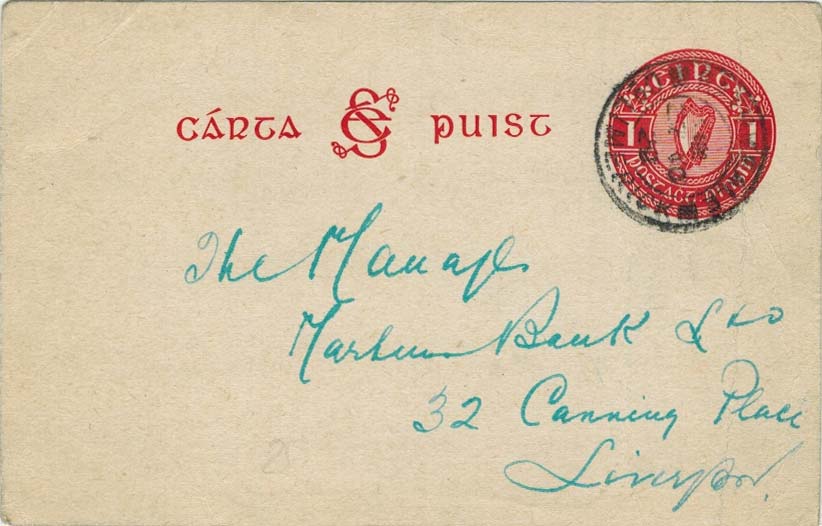 CÁRTA SÉ PUIST
PINGIN
1 1
POSTACHT
The Manager
Martins Bank Ltd
32 Canning Place
Liverpool.
25